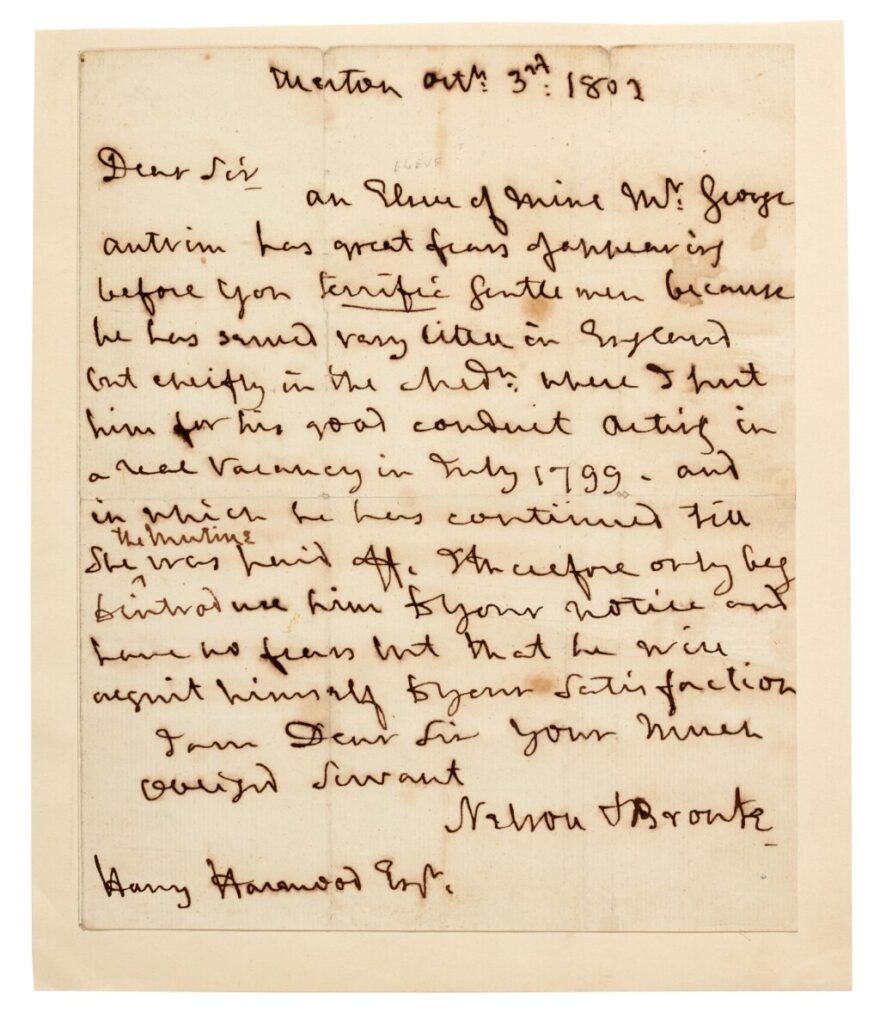 Merton Octr: 3rd: 1802
Dear Sir
ELEVE
an Eleve of mine Mr: George
Antrim has great fears of appearing
before you terrific Gentlemen because
he has served very little in England
but cheifly in the Medn: where I put
him for his good conduct Acting in
a real Vacancy in July 1799. and
in which he has continued till
the Mutine
She was paid off. I therefore only beg
to introduce him to your notice and
have no fears but that he will
acquit himself to your satisfaction
I am Dear Sir Your Much
Obliged Servant
Nelson & Bronte
Harry Harmood Esqr.